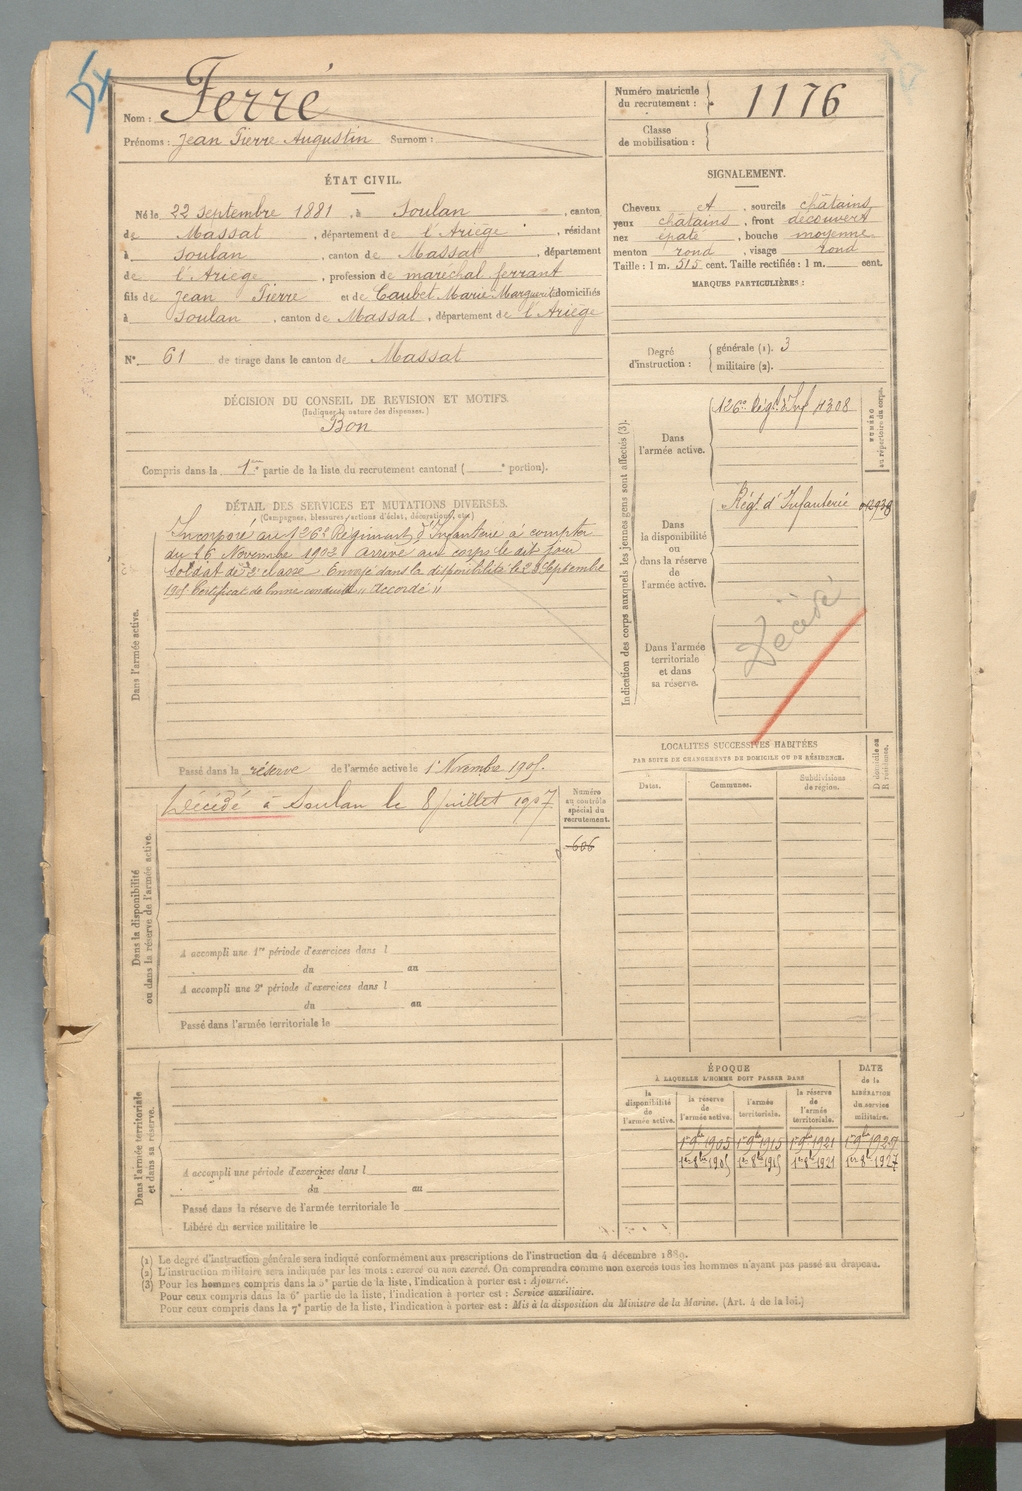 Nom : Ferré
Prénoms : Jean Pierre Augustin Surnom :
Numéro matricule du recrutement : 1176
Classe de mobilisation :
ÉTAT CIVIL.
Né le 22 septembre 1881, à Soulan, canton
de Massat, département de l'Ariège, résidant
à Soulan, canton de Massat, département
de l'Ariège, profession de maréchal ferrant
fils de Jean Pierre et de Caubet Marie Marguerite domiciliés
à Soulan, canton de Massat, département de l'Ariège
N° 61 de tirage dans le canton de Massat
SIGNALEMENT.
Cheveux et, sourcils châtains,
yeux châtains, front découvert
nez épaté, bouche moyenne
menton rond, visage rond
Taille : 1 m. 515 cent. Taille rectifiée : 1 m. cent.
MARQUES PARTICULIÈRES :
Degré d'instruction : générale (1). 3
militaire (2).
DÉCISION DU CONSEIL DE REVISION ET MOTIFS.
(Indiquer la nature des dispenses.)
Bon
Compris dans la 1re partie de la liste du recrutement cantonal ( e portion).
DÉTAIL DES SERVICES ET MUTATIONS DIVERSES.
(Campagnes, blessures, actions d'éclat, décorations, etc.)
Dans l'armée active.
Incorporé au 126e Régiment d'Infanterie à compter
du 16 Novembre 1902 arrivé au corps le dit jour
soldat de 2e classe. Envoyé dans la disponibilité le Septembre
1905 Certificat de bonne conduite "Accordé"
Passé dans la réserve de l'armée active le 1er Novembre 1905.
Indication des corps auxquels les jeunes gens sont affectés (3).
NUMÉRO au répertoire du corps.
Dans l'armée active.
126e Régt d'Inf 4308
Dans la disponibilité ou dans la réserve de l'armée active.
Régt d'Infanterie
Dans l'armée territoriale et dans sa réserve.
Décédé
Dans la disponibilité ou dans la réserve de l'armée active.
Décédé à Soulan le 8 juillet 1907
Numéro au contrôle spécial du recrutement.
606
A accompli une 1re période d'exercices dans l
du au
A accompli une 2e période d'exercices dans l
du au
Passé dans l'armée territoriale le
LOCALITÉS SUCCESSIVES HABITÉES
PAR SUITE DE CHANGEMENTS DE DOMICILE OU DE RÉSIDENCE.
Dates. Communes. Subdivisions de région. D domicile ou R résidence.
Dans l'armée territoriale et dans sa réserve.
A accompli une période d'exercices dans l
du au
Passé dans la réserve de l'armée territoriale le
Libéré du service militaire le
ÉPOQUE
À LAQUELLE L'HOMME DOIT PASSER DANS
DATE de la LIBÉRATION du service militaire.
la disponibilité de l'armée active. la réserve de l'armée active. l'armée territoriale. la réserve de l'armée territoriale.
1er 9bre 1905 1er 9bre 1915 1er 9bre 1921
1er 8bre 1905 1er 8bre 1915 1er 8bre 1921 1er 8bre 1927
(1) Le degré d'instruction générale sera indiqué conformément aux prescriptions de l'instruction du 4 décembre 1889.
(2) L'instruction militaire sera indiquée par les mots : exercé ou non exercé. On comprendra comme non exercés tous les hommes n'ayant pas passé au drapeau.
(3) Pour les hommes compris dans la 5e partie de la liste, l'indication à porter est : Ajourné.
Pour ceux compris dans la 6e partie de la liste, l'indication à porter est : Service auxiliaire.
Pour ceux compris dans la 7e partie de la liste, l'indication à porter est : Mis à la disposition du Ministre de la Marine. (Art. 4 de la loi.)